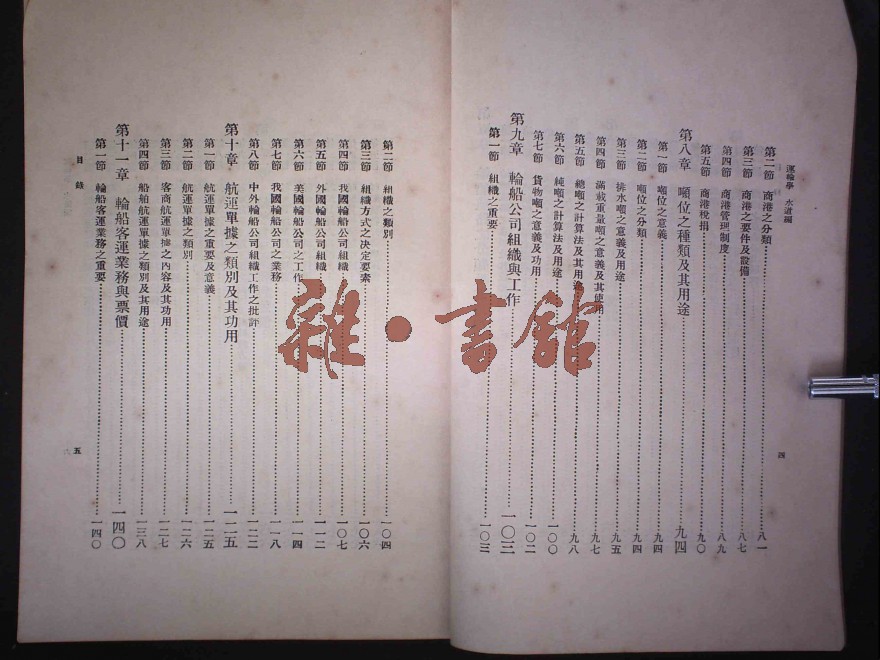 運輸學 水道編
四
第二節 商港之分類 八一
第三節 商港之要件及設備 八七
第四節 商港管理制度 八九
第五節 商港稅捐 九〇
第八章 噸位之種類及其用途 九四
第一節 噸位之意義 九四
第二節 噸位之分類 九四
第三節 排水噸之意義及用途 九五
第四節 滿載重量噸之意義及其使用 九七
第五節 總噸之計算法及其用途 九八
第六節 純噸之計算法及用途 一〇〇
第七節 貨物噸之意義及功用 一〇二
第九章 輪船公司組織與工作 一〇三
第一節 組織之重要 一〇三
第二節 組織之類別 一〇四
第三節 組織方式之決定要素 一〇六
第四節 我國輪船公司組織 一〇七
第五節 外國輪船公司組織 一一二
第六節 美國輪船公司之工作 一一四
第七節 我國輪船公司之業務 一一八
第八節 中外輪船公司組織工作之批評 一二二
第十章 航運單據之類別及其功用 一二五
第一節 航運單據之重要及意義 一二五
第二節 航運單據之類別 一二六
第三節 客商航運單據之內容及其功用 一二七
第四節 船舶航運單據之類別及其用途 一三八
第十一章 輪船客運業務與票價 一四〇
第一節 輪船客運業務之重要 一四〇
目錄
五
雜·書館